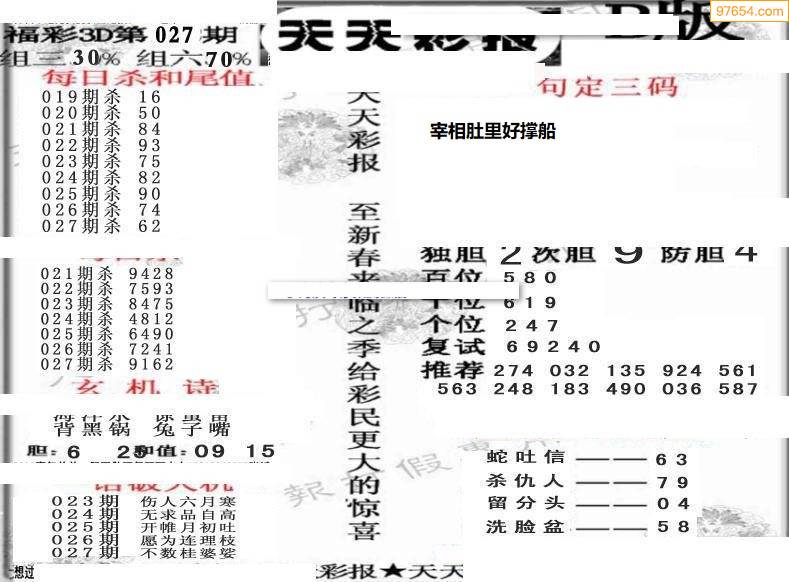 97654.com
福彩3D第027期
天天彩报
B版
组三30% 组六70%
每日杀和尾值
019期杀 16
020期杀 50
021期杀 84
022期杀 93
023期杀 75
024期杀 82
025期杀 90
026期杀 74
027期杀 62
021期杀 9428
022期杀 7593
023期杀 8475
024期杀 4812
025期杀 6490
026期杀 7241
027期杀 9162
玄机诗
背黑锅 兔子嘴
胆:6 25和值:09 15
023期 伤人六月寒
024期 无求品自高
025期 开帷月初吐
026期 愿为连理枝
027期 不数桂婆娑
想过
天天彩报 至新春来临之季给彩民更大的惊喜
句定三码
宰相肚里好撑船
独胆2次胆9防胆4
百位 580
十位 619
个位 247
复试 69240
推荐 274 032 135 924 561
563 248 183 490 036 587
蛇吐信 ——— 63
杀仇人 ——— 79
留分头 ——— 04
洗脸盆 ——— 58
彩报★天天